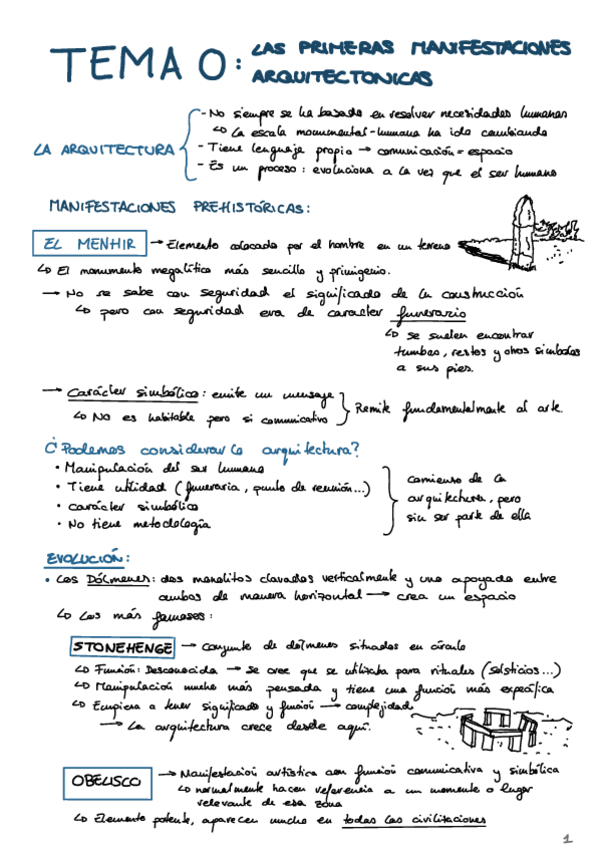 TEMA 0: LAS PRIMERAS MANIFESTACIONES
ARQUITECTONICAS
LA ARQUITECTURA
- No siempre se ha basado en resolver necesidades humanas
↳ La escala monumental-humana ha ido cambiando
- Tiene lenguaje propio → comunicación = espacio
- Es un proceso: evoluciona a la vez que el ser humano
MANIFESTACIONES PREHISTÓRICAS:
EL MENHIR → Elemento colocado por el hombre en un terreno
↳ El monumento megalítico más sencillo y primigenio.
→ No se sabe con seguridad el significado de la construcción
↳ pero con seguridad era de caracter funerario
↳ se suelen encontrar
tumbas, restos y otros simbolos
a sus pies.
→ Carácter simbólico: emite un mensaje
↳ No es habitable pero si comunicativo
Remite fundamentalmente al arte.
¿Podemos considerarlo arquitectura?
• Manipulación del ser humano
• Tiene utilidad (funeraria, punto de reunión...)
• carácter simbólico
• No tiene metodología
comienzo de la
arquitectura, pero
sin ser parte de ella
EVOLUCIÓN:
• Los Dólmenes: dos monolitos clavados verticalmente y uno apoyado entre
ambos de manera horizontal → crea un espacio
↳ Los más famosos:
STONEHENGE → conjunto de dólmenes situados en círculo
↳ Función: Desconocida → se cree que se utilizaba para rituales (solsticios...)
↳ Manipulación mucho más pensada y tiene una función más específica
↳ Empieza a tener significado y función → complejidad
→ La arquitectura crece desde aquí.
OBELISCO → Manifestación artística con función comunicativa y simbólica
↳ normalmente hacen referencia a un momento o lugar
relevante de esa zona
↳ Elemento potente, aparecen mucho en todas las civilitaciones
1